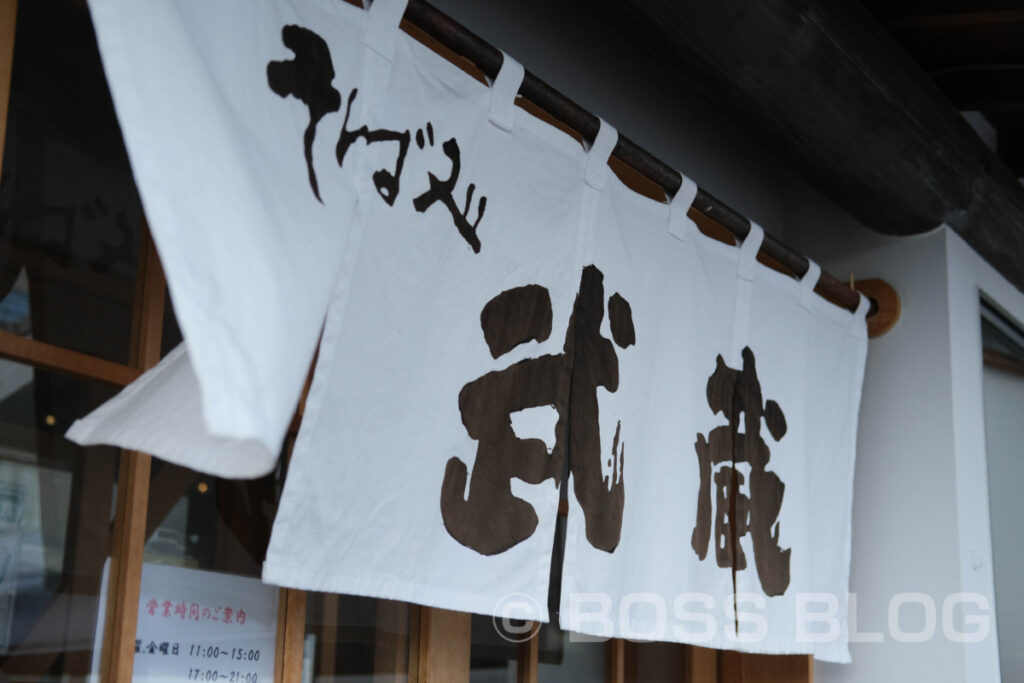 さんばそ
武蔵
営業時間のご案内
曜、金曜日 11:00〜15:00
17:00〜21:00
© BOSS BLOG